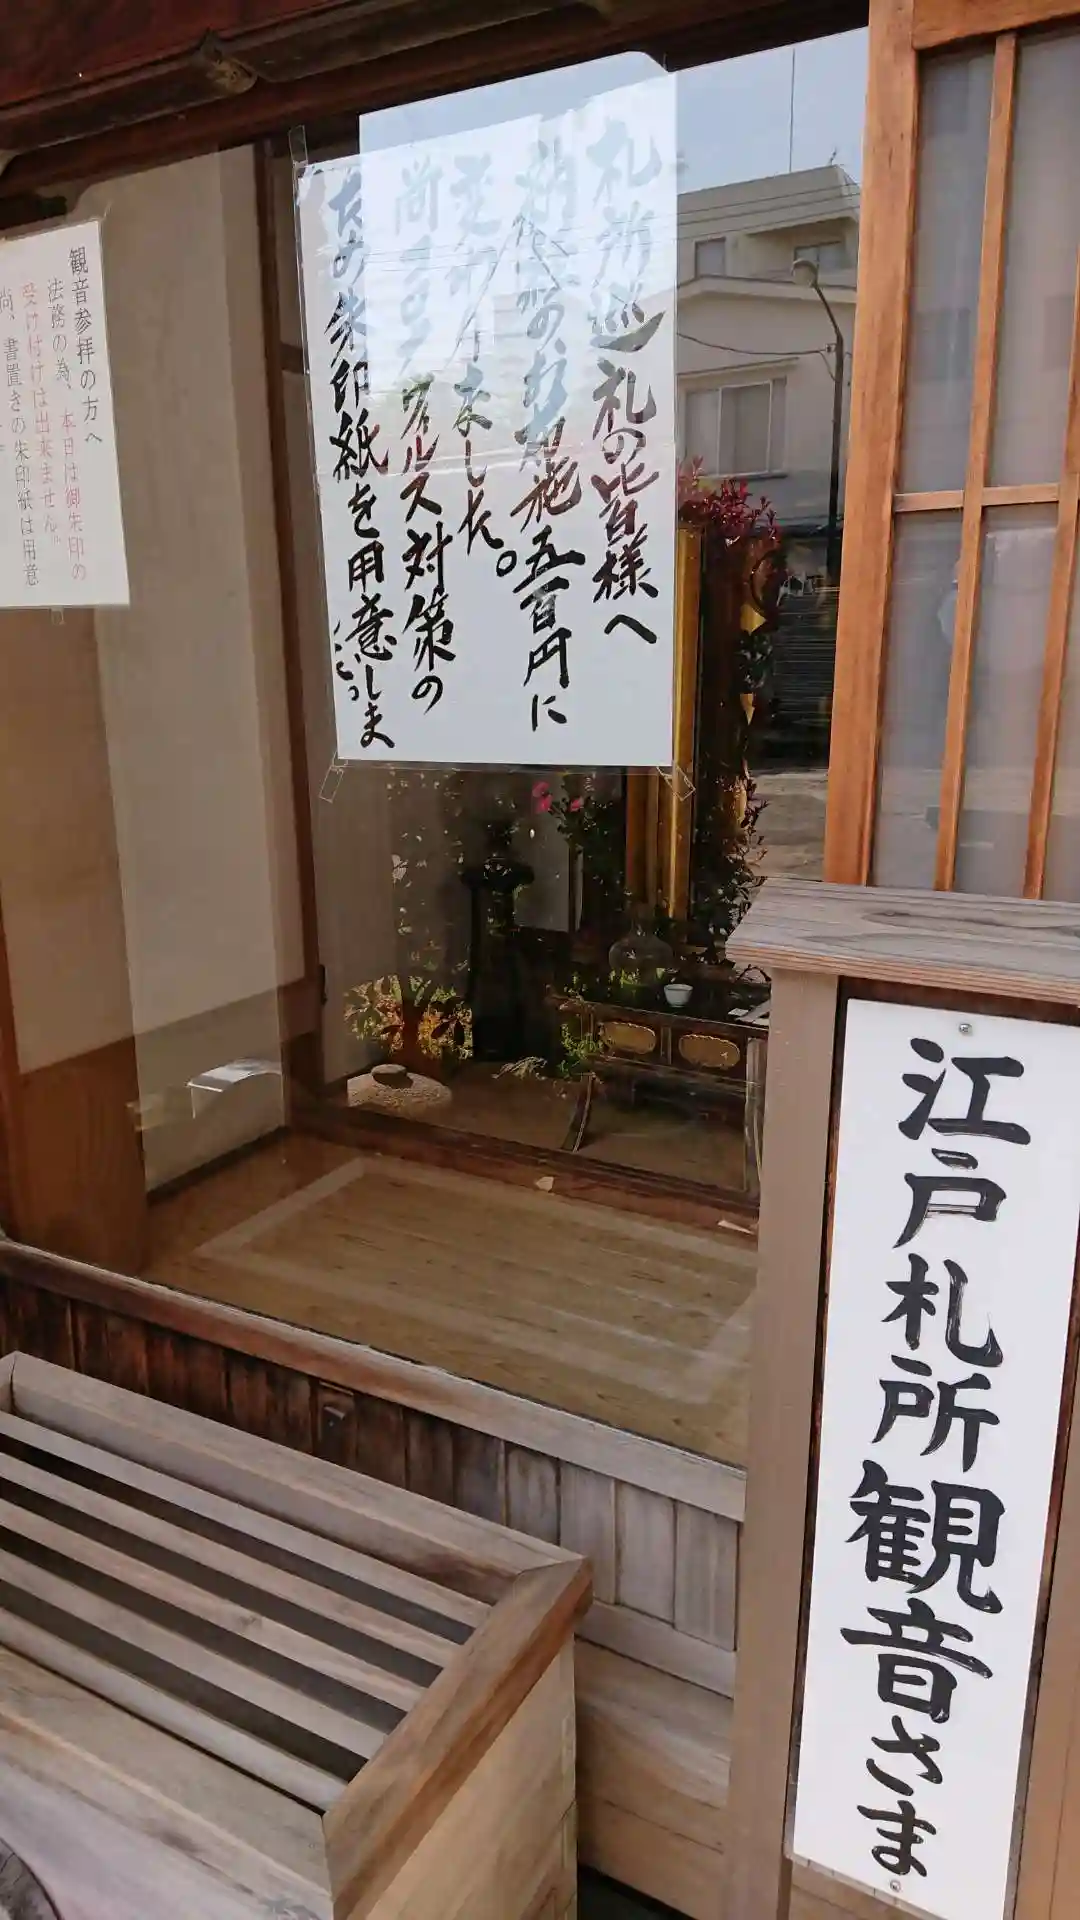 札所巡礼の皆様へ
納経のお布施五百円に
変却しました。
尚コロナウィルス対策の
ため朱印紙を用意しま
観音参拝の方へ
法務の為、本日は御朱印の
受け付けは出来ません。
尚、書置きの朱印紙は用意
江戸札所観音さま